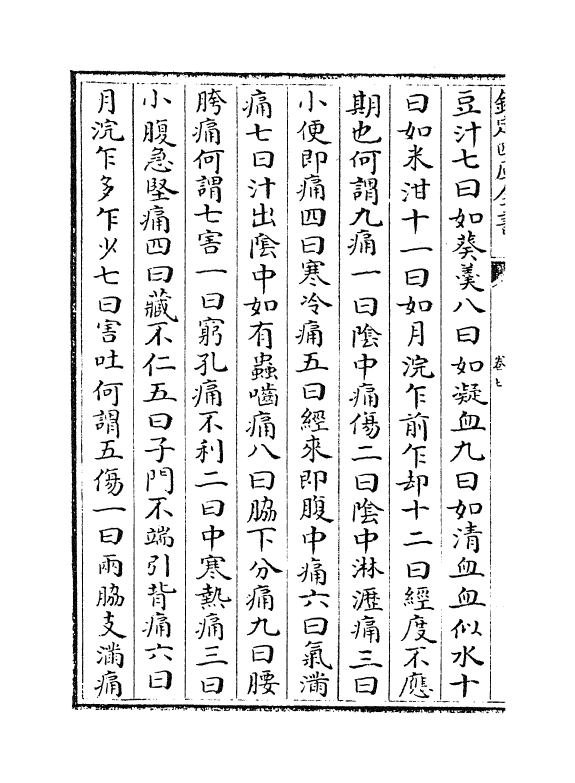 欽定四庫全書
卷七
豆汁七曰如葵羹八曰如凝血九曰如清血血似水十
曰如米泔十一曰如月浣乍前乍却十二曰經度不應
期也何謂九痛一曰陰中痛傷二曰陰中淋瀝痛三曰
小便即痛四曰寒冷痛五曰經來即腹中痛六曰氣滿
痛七曰汁出陰中如有蟲嚙痛八曰脇下分痛九曰腰
胯痛何謂七害一曰窮孔痛不利二曰中寒熱痛三曰
小腹急堅痛四曰藏不仁五曰子門不端引背痛六曰
月浣乍多乍少七曰害吐何謂五傷一曰兩脇支滿痛